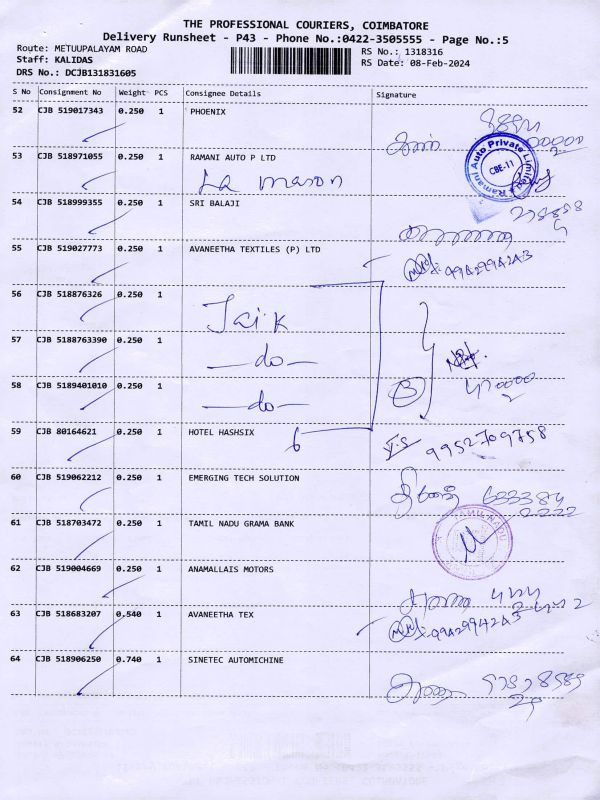 THE PROFESSIONAL COURIERS, COIMBATORE
Delivery Runsheet - P43 - Phone No.:0422-3505555 - Page No.:5
Route: METUUPALAYAM ROAD
RS No.: 1318316
Staff: KALIDAS
RS Date: 08-Feb-2024
DRS No.: DCJB131831605
S No Consignment No Weight PCS Consignee Details Signature
52 CJB 519017343 0.250 1 PHOENIX
53 CJB 518971055 0.250 1 RAMANI AUTO P LTD
Ramani Auto Private Limited
CBE-11
La maron
54 CJB 518999355 0.250 1 SRI BALAJI
55 CJB 519027773 0.250 1 AVANEETHA TEXTILES (P) LTD
9942994243
56 CJB 518876326 0.250 1
Jai K
57 CJB 5188763390 0.250 1
do
58 CJB 5189401010 0.250 1
do
59 CJB 80164621 0.250 1 HOTEL HASHSIX
6
9952709758
60 CJB 519062212 0.250 1 EMERGING TECH SOLUTION
61 CJB 518703472 0.250 1 TAMIL NADU GRAMA BANK
TAMIL NADU
62 CJB 519004669 0.250 1 ANAMALLAIS MOTORS
63 CJB 518683207 0.540 1 AVANEETHA TEX
9942994243
64 CJB 518906250 0.740 1 SINETEC AUTOMICHINE